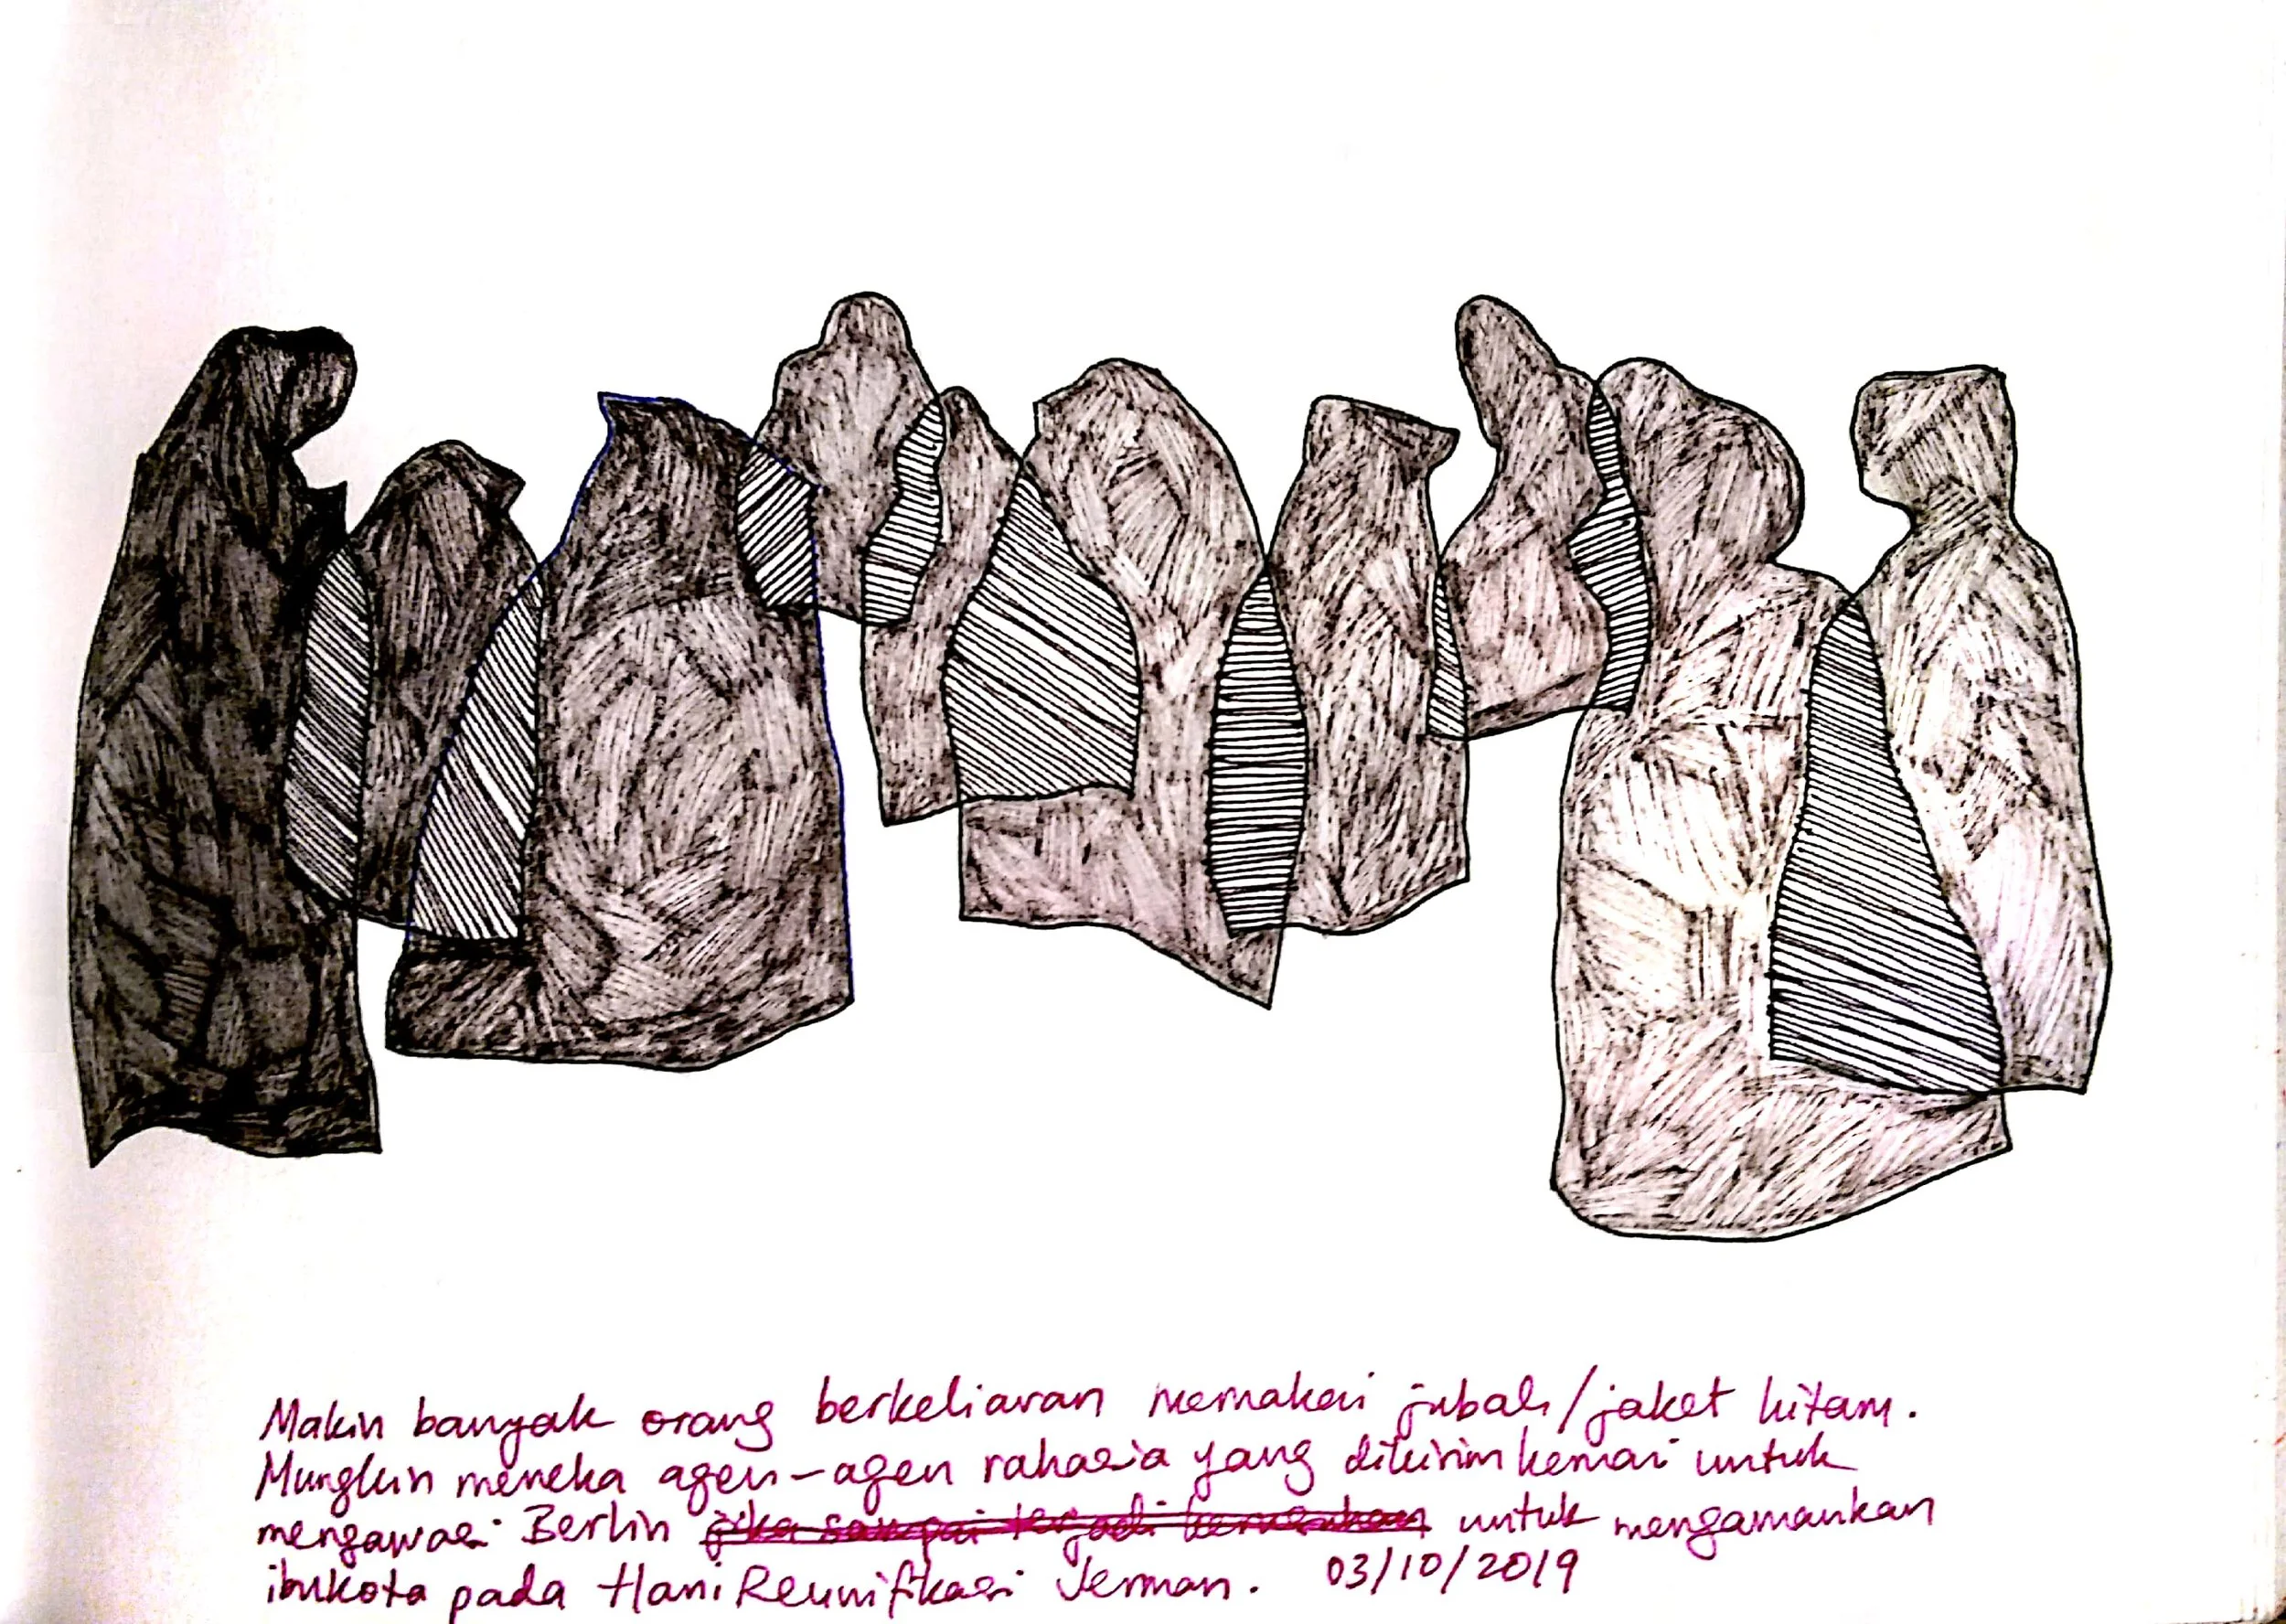 Makin banyak orang berkeliaran memakai jubah/jaket hitam.
Mungkin mereka agen-agen rahasia yang dikirim kemari untuk
mengawasi Berlin jika sampai terjadi untuk mengamankan
ibukota pada Hari Reunifikasi Jerman. 03/10/2019